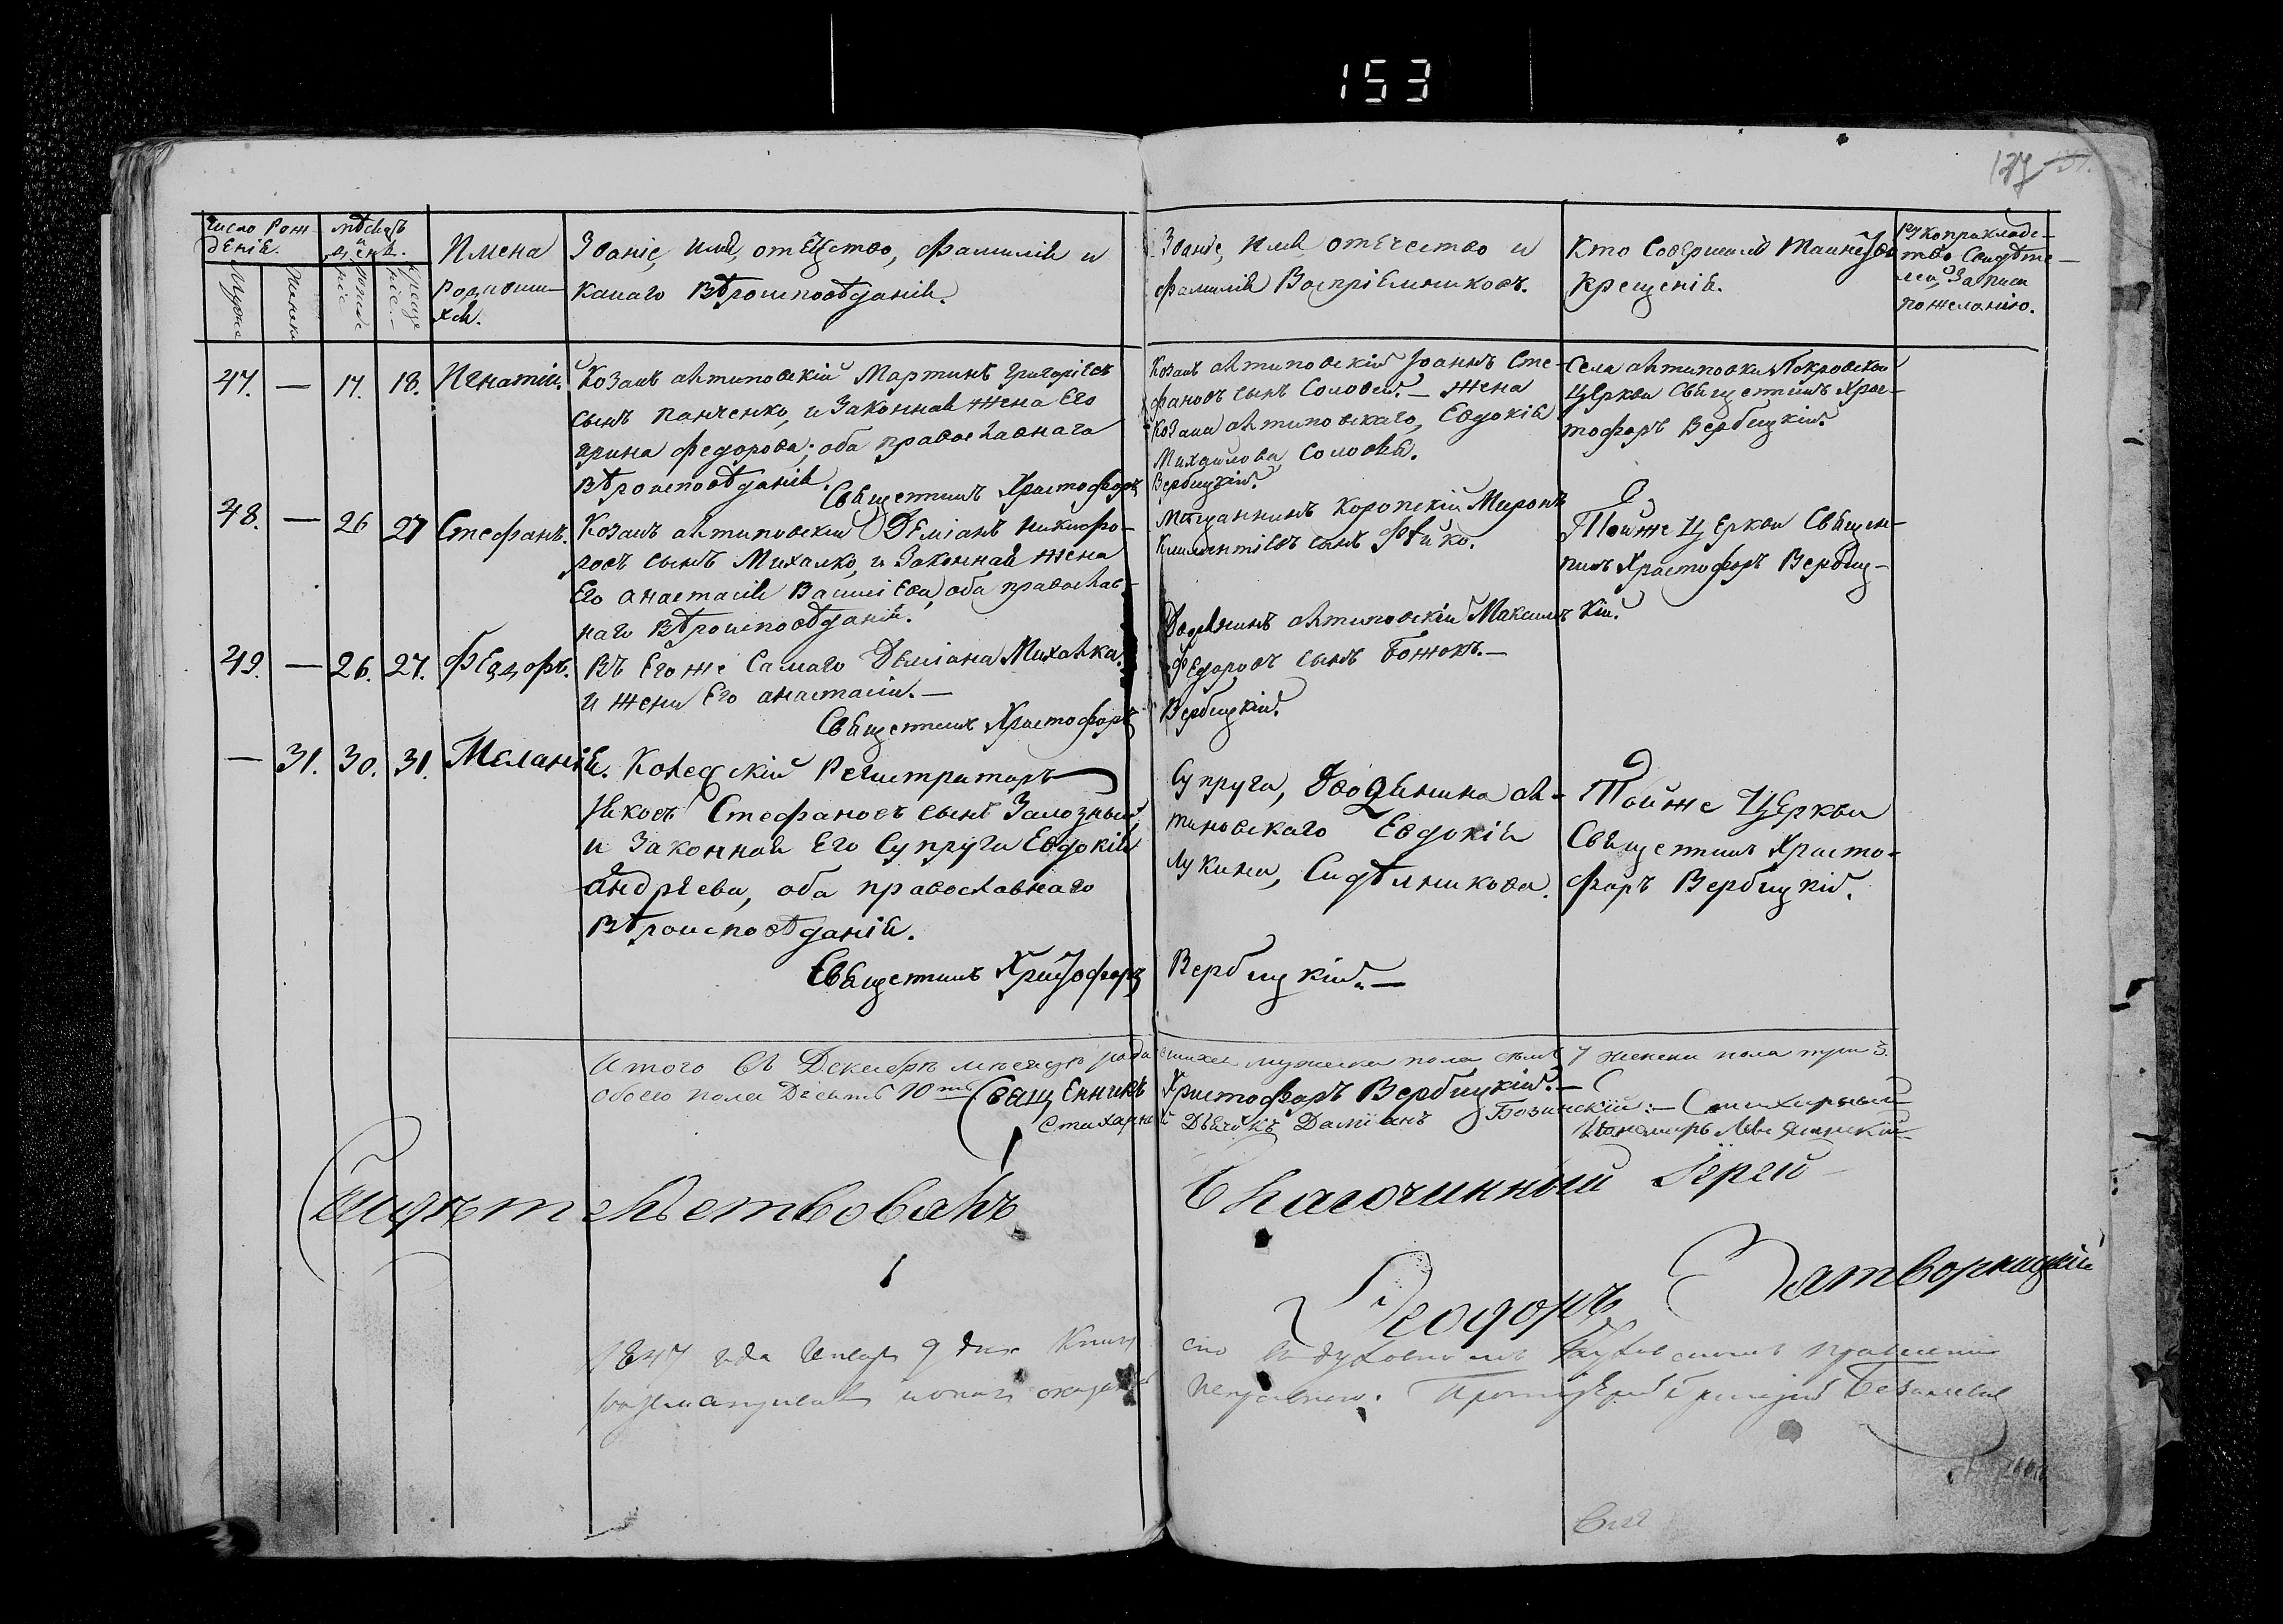 153
127
Число рож-
деній.
Мѣсяцъ
и
день.
Имена
родивши-
хся.
Званіе, имя, отечество, фамилія и
какаго вѣроисповѣданія.
Званіе, имя, отечество и
фамилія воспріемниковъ.
Кто совершалъ таинство
крещенія.
Рукоприкладс-
тво свидѣте-
лей записи
по желанію.
47. — 17. 18. Игнатій.
Козакъ алтиновскій Мартинъ Григоріевъ
сынъ Панченко, и законная жена его
Ирина Федорова; оба православнаго
вѣроисповѣданія.
Священникъ Христофоръ
Козакъ алтиновскій Іоаннъ Сте-
фановъ сынъ Соловей. — Жена
козака алтиновскаго, Евдокія
Михайлова Соловья.
Вербицкій.
Села Алтиновки Покровской
церкви священникъ Хрис-
тофоръ Вербицкій.
48. — 26 27 Стефанъ.
Козакъ алтиновскій Деміанъ Никифо-
ровъ сынъ Михалко, и законная жена
его Анастасія Василіева, оба православ-
наго вѣроисповѣданія.
Мѣщанинъ коропскій Миронъ
Климентіевъ сынъ
Той же церкви священ-
никъ Христофоръ Вербиц-
кій.
49. — 26. 27. Феодоръ.
Въ его же самаго Деміана Михалка
и жены его Анастасіи. —
Священникъ Христофоръ
Дворянинъ алтиновскій Максимъ
Федоровъ сынъ Божокъ. —
Вербицкій.
— 31. 30. 31. Меланія.
Колежскій регистраторъ
Яковъ Стефановъ сынъ Залозный,
и законная его супруга Евдокія
Андрѣева, оба православнаго
вѣроисповѣданія.
Священникъ Христофоръ
Супруга, дворянина ал-
тиновскаго Евдокія
Лукина, Сидѣлникова.
Вербицкій. —
Той же церкви
священникъ Христо-
форъ Вербицкій.
Итого въ Декабрѣ мѣсяцѣ родившихся мужеска пола семь 7 женска пола три 3.
обоего пола десять 10ть Священникъ Христофоръ Вербицкій. —
Стихарный Дьячокъ Даміанъ Бозинскій: — Стихирный
Пономарь
Свидѣтельствовалъ Благочинный Іерей
Феодоръ Затворницкій
1847 года Января 9 дня Книга сія въ духовномъ правленіи
Протоіерей